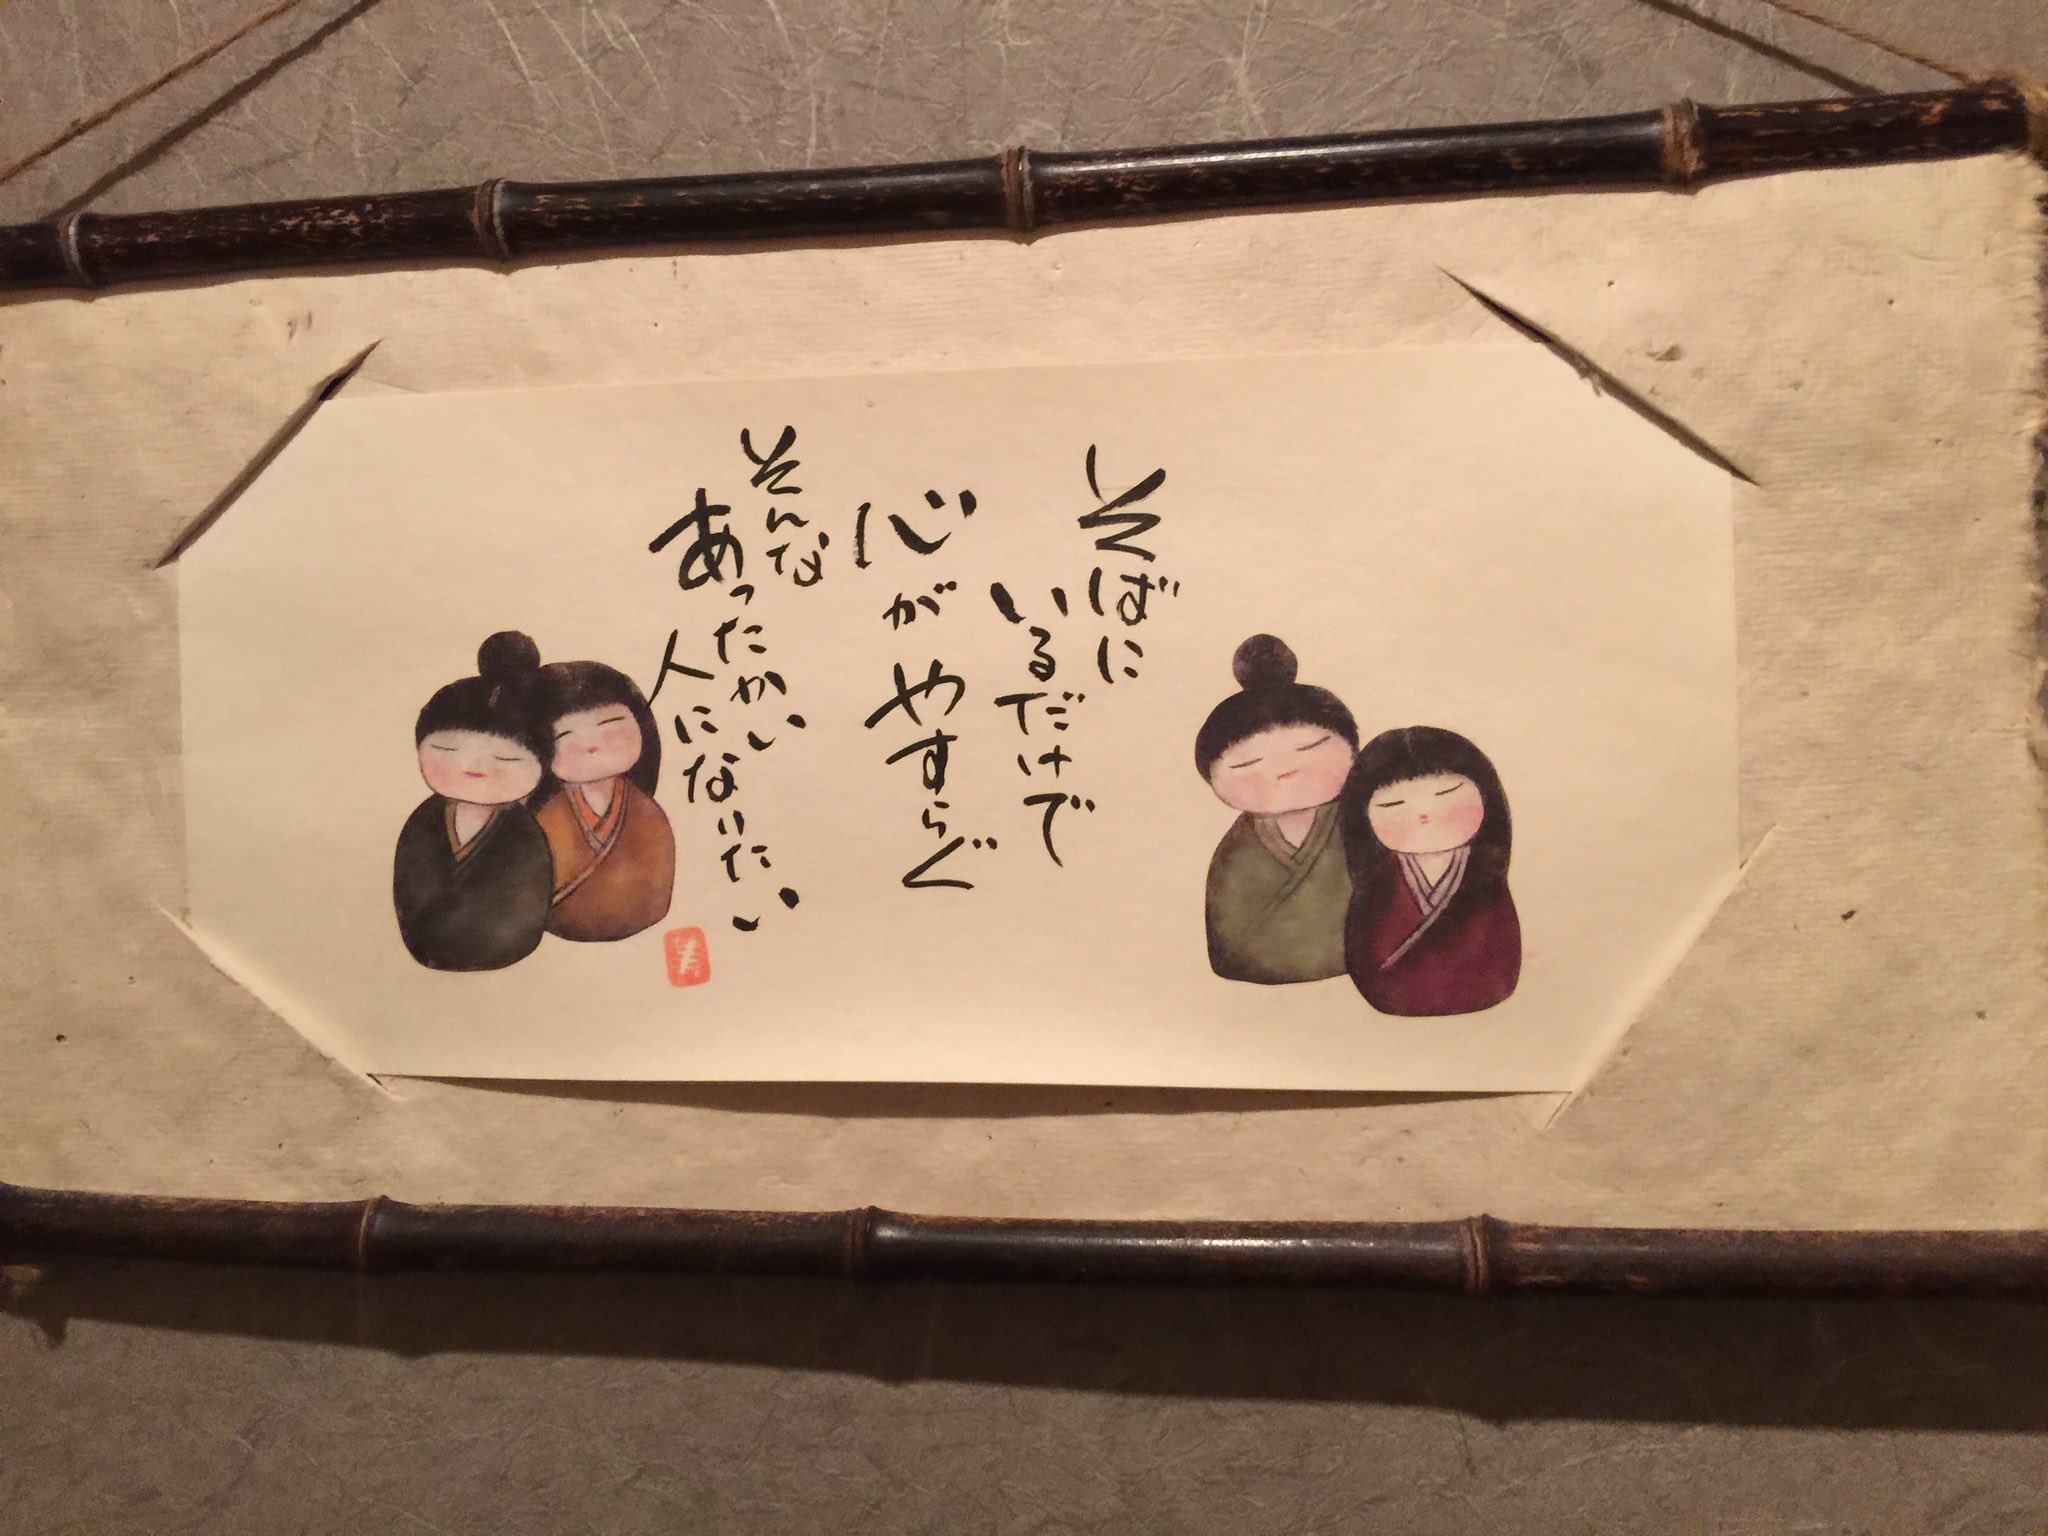 そばに
いるだけで
心がやすらぐ
そんな
あったかい
人になりたい